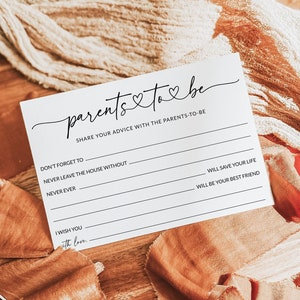 parents to be
SHARE YOUR ADVICE WITH THE PARENTS-TO-BE
DON'T FORGET TO
NEVER LEAVE THE HOUSE WITHOUT
WILL SAVE YOUR LIFE
NEVER EVER
WILL BE YOUR BEST FRIEND
I WISH YOU
with love,